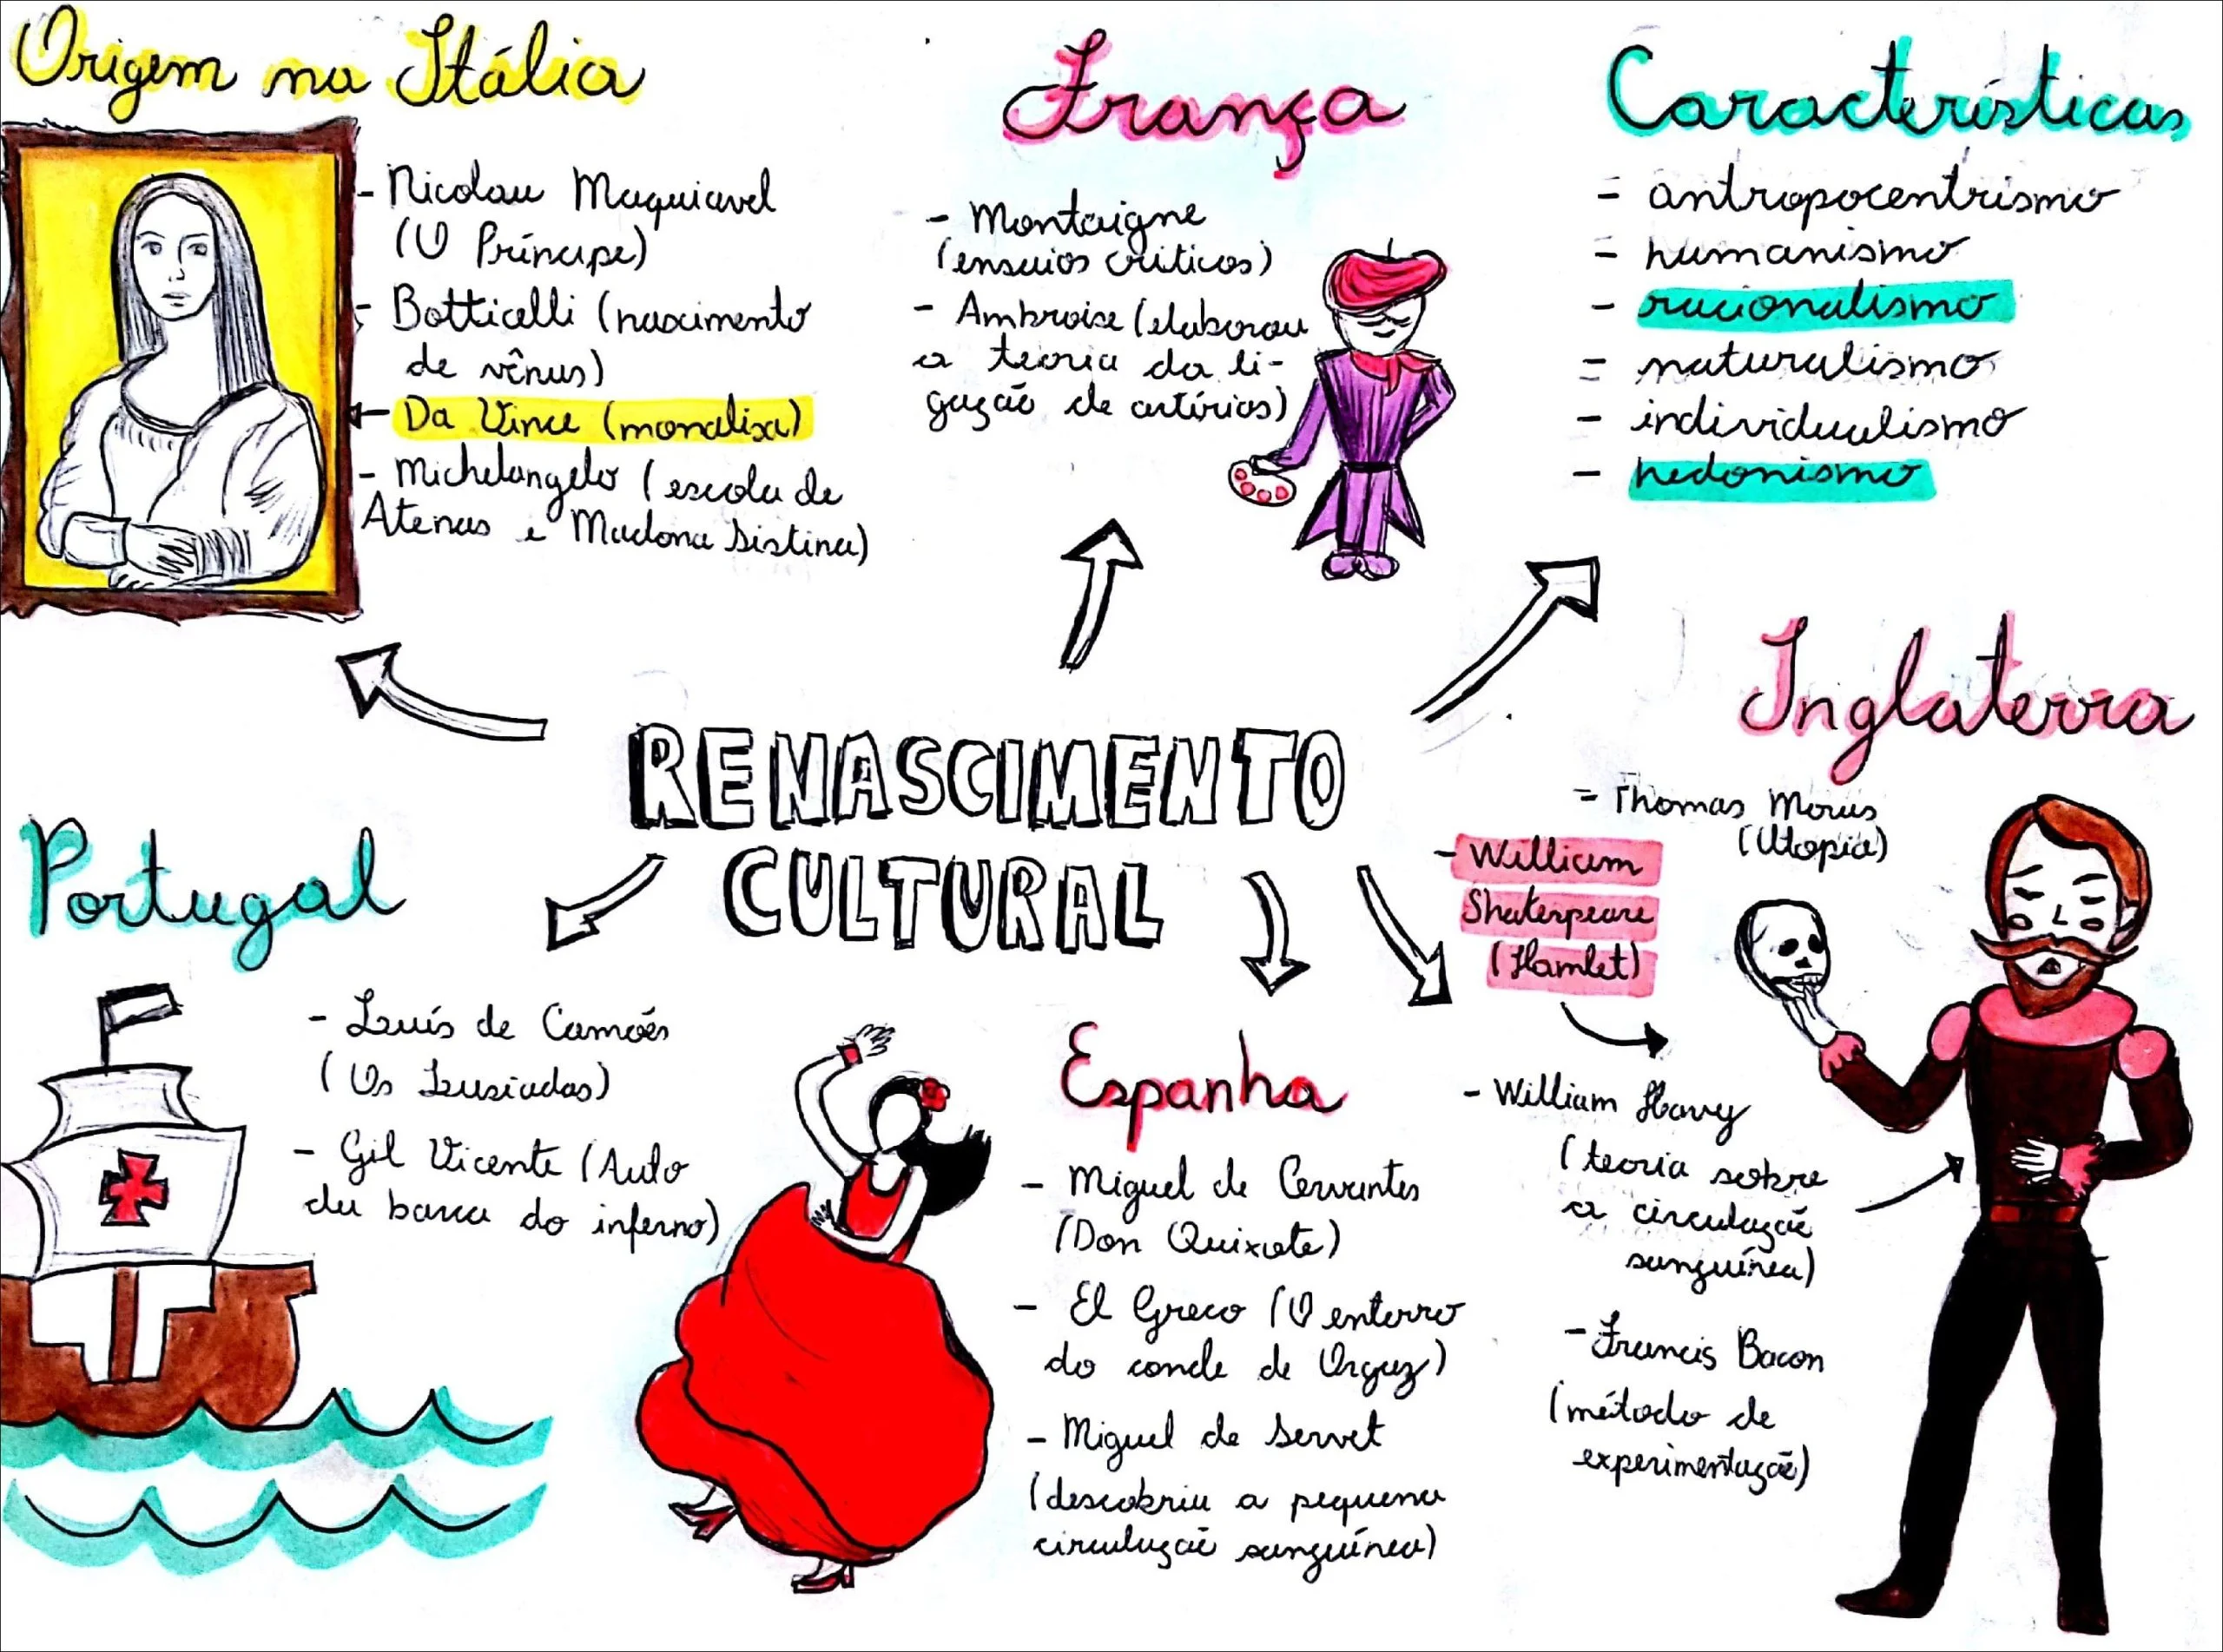 Origem na Itália
- Nicolau Maquiavel
(O Príncipe)
- Botticelli (nascimento
de vênus)
Da Vince (monalisa)
- Michelangelo (escola de
Atenas e Madona Sistina)
França
- Montaigne
(ensaios críticos)
- Ambroise (elaborou
a teoria da li-
gação de artérias)
Características
- antropocentrismo
- humanismo
- racionalismo
- naturalismo
- individualismo
- hedonismo
RENASCIMENTO
CULTURAL
Inglaterra
- Thomas Morus
(Utopia)
- William
Shakespeare
(Hamlet)
- William Harvy
(teoria sobre
a circulação
sanguínea)
- Francis Bacon
(método de
experimentação)
Portugal
- Luís de Camões
(Os Lusiadas)
- Gil Vicente (Auto
da barca do inferno)
Espanha
- Miguel de Cervantes
(Don Quixote)
- El Greco (O enterro
do conde de Orgaz)
- Miguel de Servet
(descobriu a pequena
circulação sanguínea)